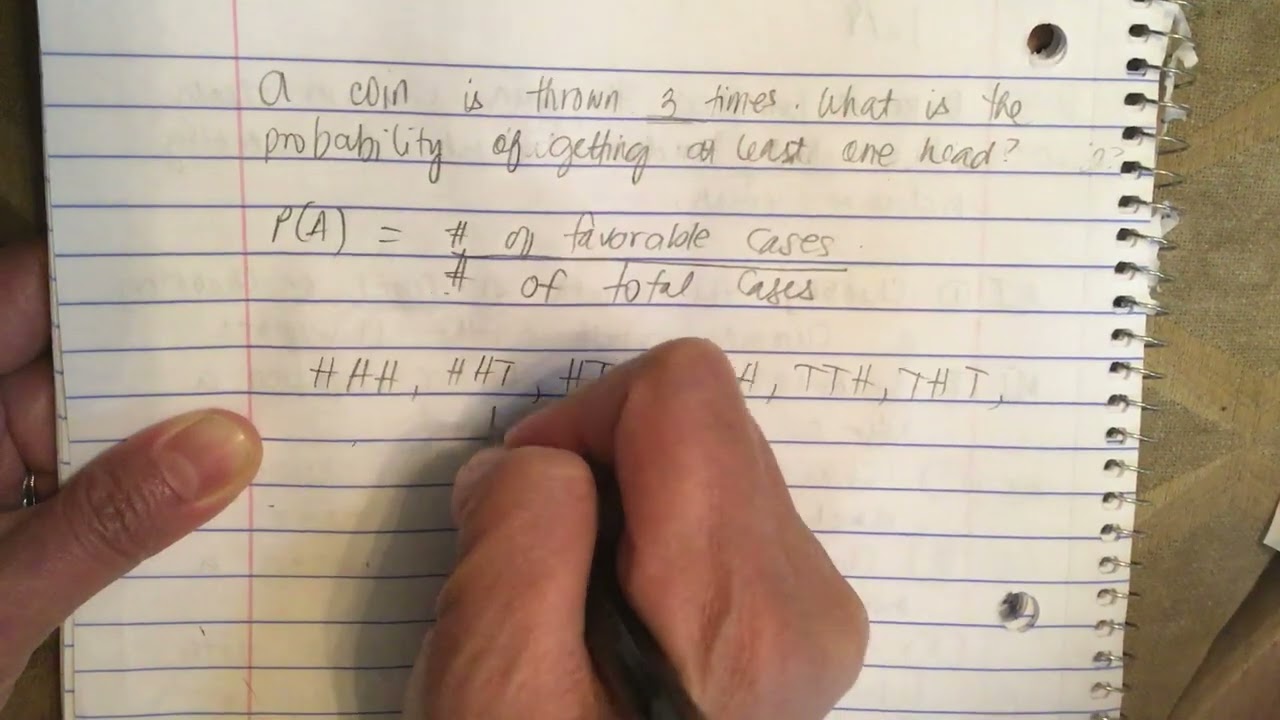 A coin is thrown 3 times. What is the
probability of getting at least one head?
P(A) = # of favorable cases
# of total cases
HHH, HHT, HT H, TTH, THT,